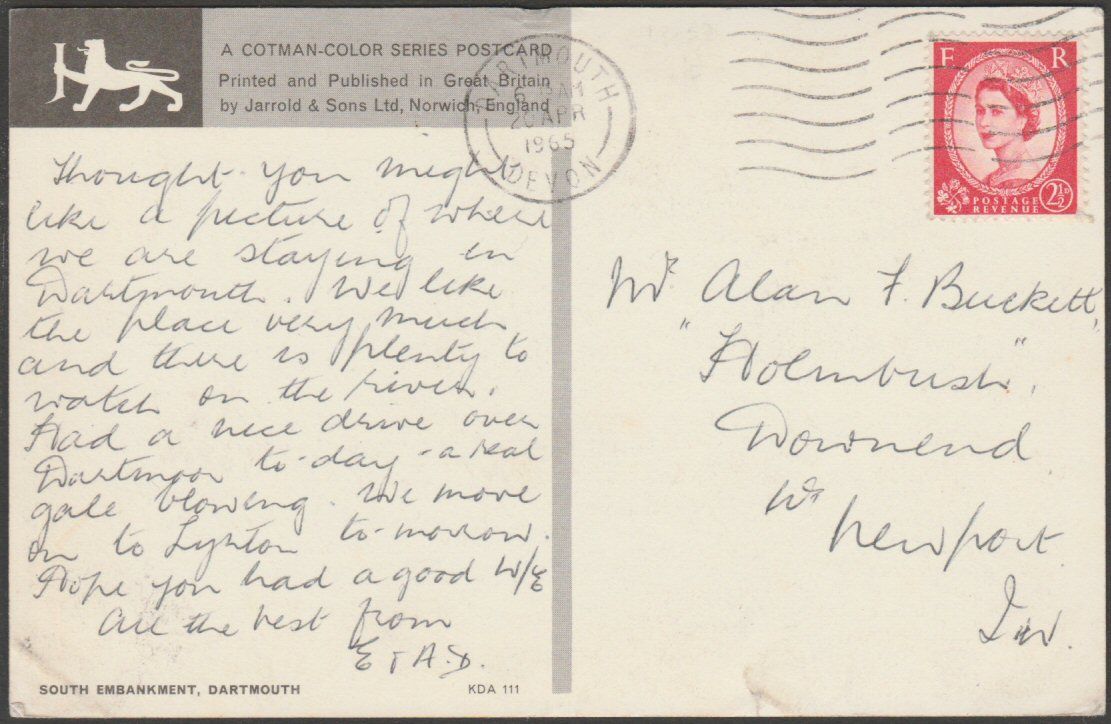 A COTMAN-COLOR SERIES POSTCARD
Printed and Published in Great Britain
by Jarrold & Sons Ltd, Norwich, England
DARTMOUTH
20 APR
1965
DEVON
E R
POSTAGE
REVENUE
2½D
Thought you might
like a picture of where
we are staying in
Dartmouth. We like
the place very much
and there is plenty to
watch on the river.
Had a nice drive over
Dartmoor to-day - a real
gale blowing. We move
on to Lynton to-morrow.
Hope you had a good W/E
All the best from
E & A.D.
Mr Alan F. Buckett,
"Holmbush",
Downend
Nr Newport
I.W.
SOUTH EMBANKMENT, DARTMOUTH
KDA 111